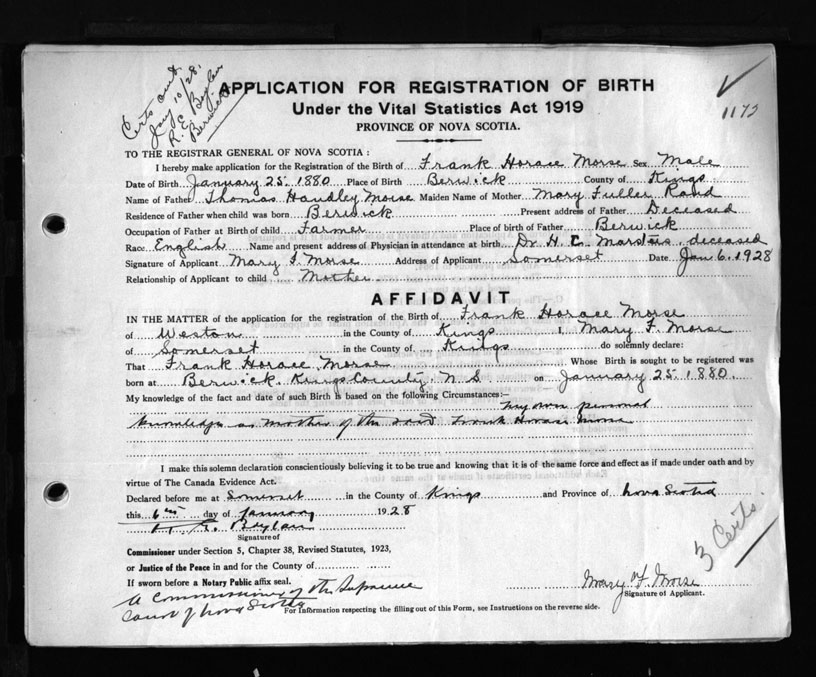 Certs out.
Jany 10/28.
R. E.
Berwick
✓
1175
APPLICATION FOR REGISTRATION OF BIRTH
Under the Vital Statistics Act 1919
PROVINCE OF NOVA SCOTIA.
TO THE REGISTRAR GENERAL OF NOVA SCOTIA :
I hereby make application for the Registration of the Birth of Frank Horace Morse Sex Male
Date of Birth January 25. 1880 Place of Birth Berwick County of Kings
Name of Father Thomas Handley Morse Maiden Name of Mother Mary Fuller Rand
Residence of Father when child was born Berwick Present address of Father Deceased
Occupation of Father at Birth of child Farmer Place of birth of Father Berwick
Race English Name and present address of Physician in attendance at birth Dr. H. C. Marsters, deceased
Signature of Applicant Mary F. Morse Address of Applicant Somerset Date Jan 6. 1928
Relationship of Applicant to child Mother
AFFIDAVIT
IN THE MATTER of the application for the registration of the Birth of Frank Horace Morse
of Weston in the County of Kings I, Mary F. Morse
of Somerset in the County of Kings do solemnly declare:
That Frank Horace Morse Whose Birth is sought to be registered was
born at Berwick. Kings County. N S on January 25. 1880.
My knowledge of the fact and date of such Birth is based on the following Circumstances:— my own personal
knowledge as mother of the said Frank Horace Morse
I make this solemn declaration conscientiously believing it to be true and knowing that it is of the same force and effect as if made under oath and by
virtue of The Canada Evidence Act.
Declared before me at Somerset in the County of Kings and Province of Nova Scotia
this 6th day of January 1928
Signature of
Commissioner under Section 5, Chapter 38, Revised Statutes, 1923,
or Justice of the Peace in and for the County of
If sworn before a Notary Public affix seal.
A Commissioner of the Supreme
Court of Nova Scotia
3 Certs.
Mary F. Morse
Signature of Applicant.
For Information respecting the filling out of this Form, see Instructions on the reverse side.